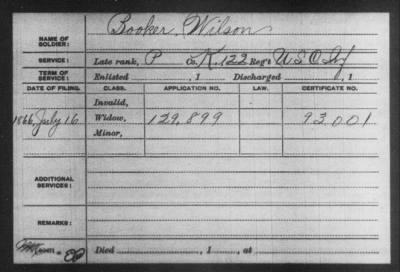 NAME OF SOLDIER: Booker, Wilson
SERVICE: Late rank, P Co. K, 122 Reg't U S C Inf
TERM OF SERVICE: Enlisted , 1 Discharged , 1
DATE OF FILING. CLASS. APPLICATION NO. LAW. CERTIFICATE NO.
Invalid,
1866, July 16 Widow, 129,899 93,001
Minor,
ADDITIONAL SERVICES:
REMARKS:
Died , 1 , at